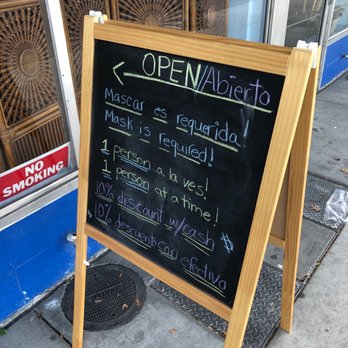 OPEN/Abierto
Mascar es requerida
Mask is required!
1 person a la ves!
1 person at a time!
10% discount w/cash
10% descuento con efectivo
NO
SMOKING